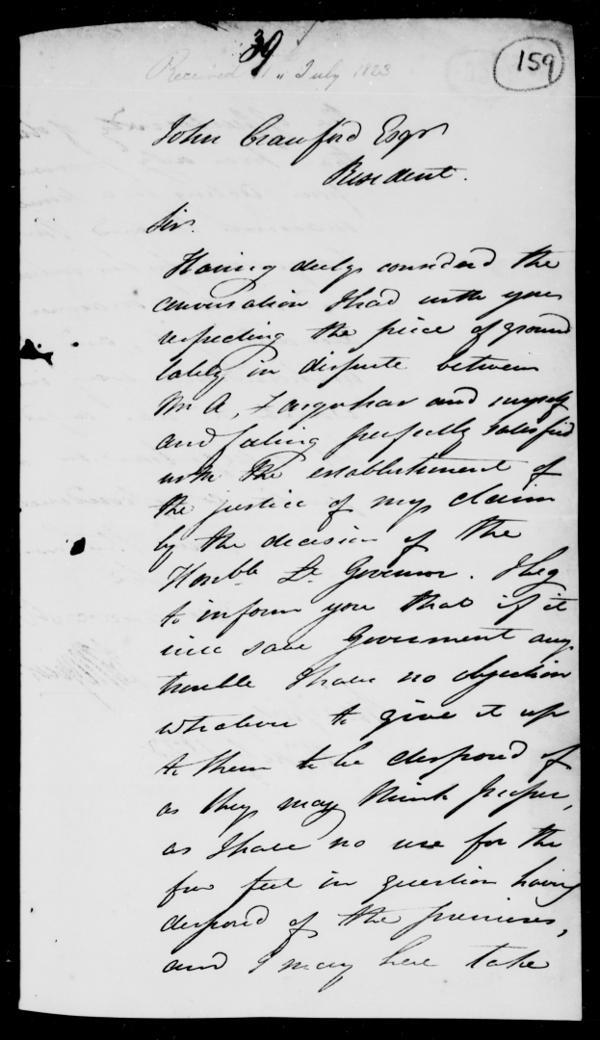 39
159
Received 11 " July 1823
John Crawford Esqr
Resident.
Sir.
Having duly considered the
conversation I had with you
respecting the piece of ground
lately in dispute between
Mr A, Farquhar and myself
and feeling perfectly satisfied
with the establishment of
the justice of my claim
by the decision of the
Honble Lt Governor. I beg
to inform you that if it
will save Government any
trouble I have no objection
whatever to give it up
to them to be disposed of
as they may think proper,
as I have no use for the
few feet in question having
disposed of the premises,
and I may here take